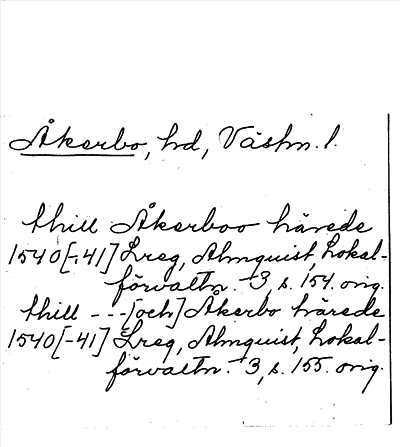 Åkerbo, hd, Västm. l.
thill Åkerboo härede
1540[-41] Lreg, Almquist, Lokal-
förvaltn. 3, s. 154. orig.
thill - - -[och] Åkerbo härede
1540[-41] Lreg, Almquist, Lokal-
förvaltn. 3, s. 155. orig.